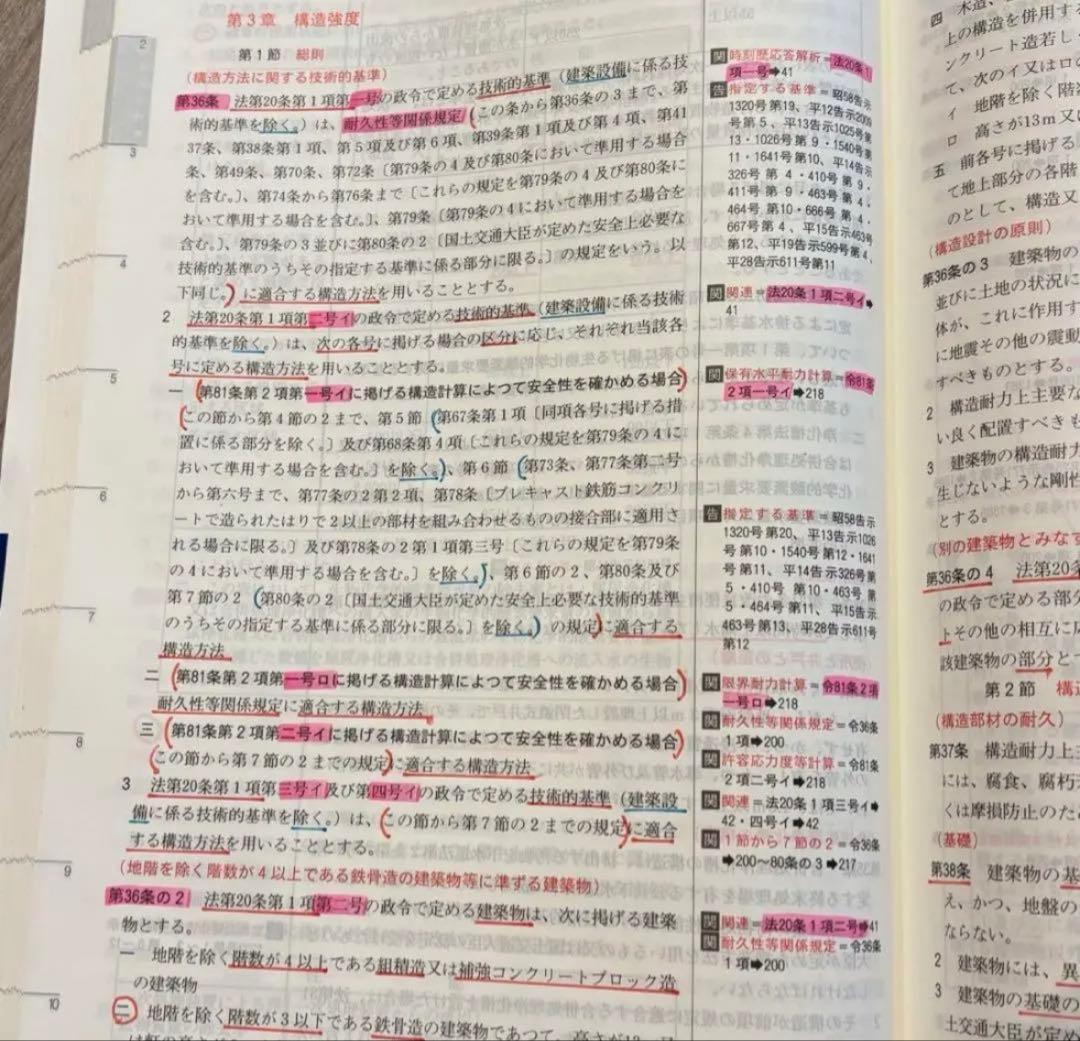 第3章 構造強度
第1節 総則
(構造方法に関する技術的基準)
第36条 法第20条第1項第一号の政令で定める技術的基準(建築設備に係る技
術的基準を除く。)は、耐久性等関係規定(この条から第36条の3まで、第
37条、第38条第1項、第5項及び第6項、第39条第1項及び第4項、第41
条、第49条、第70条、第72条〔第79条の4及び第80条において準用する場合
を含む。〕、第74条から第76条まで〔これらの規定を第79条の4及び第80条に
おいて準用する場合を含む。〕、第79条〔第79条の4において準用する場合を
含む。〕、第79条の3並びに第80条の2〔国土交通大臣が定めた安全上必要な
技術的基準のうちその指定する基準に係る部分に限る。〕の規定をいう。以
下同じ。)に適合する構造方法を用いることとする。
2 法第20条第1項第二号イの政令で定める技術的基準(建築設備に係る技術
的基準を除く。)は、次の各号に掲げる場合の区分に応じ、それぞれ当該各
号に定める構造方法を用いることとする。
一 (第81条第2項第一号イに掲げる構造計算によつて安全性を確かめる場合)
(この節から第4節の2まで、第5節(第67条第1項〔同項各号に掲げる措
置に係る部分を除く。〕及び第68条第4項〔これらの規定を第79条の4に
おいて準用する場合を含む。〕を除く。)、第6節(第73条、第77条第二号
から第六号まで、第77条の2第2項、第78条〔プレキャスト鉄筋コンクリ
ートで造られたはりで2以上の部材を組み合わせるものの接合部に適用さ
れる場合に限る。〕及び第78条の2第1項第三号〔これらの規定を第79条
の4において準用する場合を含む。〕を除く。)、第6節の2、第80条及び
第7節の2(第80条の2〔国土交通大臣が定めた安全上必要な技術的基準
のうちその指定する基準に係る部分に限る。〕を除く。)の規定)に適合する
構造方法
二 (第81条第2項第一号ロに掲げる構造計算によつて安全性を確かめる場合)
耐久性等関係規定に適合する構造方法
三 (第81条第2項第二号イに掲げる構造計算によつて安全性を確かめる場合)
(この節から第7節の2までの規定)に適合する構造方法
3 法第20条第1項第三号イ及び第四号イの政令で定める技術的基準(建築設
備に係る技術的基準を除く。)は、(この節から第7節の2までの規定)に適合
する構造方法を用いることとする。
(地階を除く階数が4以上である鉄骨造の建築物等に準ずる建築物)
第36条の2 法第20条第1項第二号の政令で定める建築物は、次に掲げる建築
物とする。
一 地階を除く階数が4以上である組積造又は補強コンクリートブロック造
の建築物
二 地階を除く階数が3以下である鉄骨造の建築物であつて、高さが13
関 時刻歴応答解析=法20条1
項一号➡41
告 指定する基準=昭58告示
1320号第19、平12告示2009
号第5、平13告示1025号第
13・1026号第9・1540号第
11・1641号第10、平14告示
326号第4・410号第9・
411号第9・463号第4・
464号第10・666号第4・
667号第4、平15告示463号
第12、平19告示599号第4、
平28告示611号第11
関 関連=法20条1項二号イ➡
41
関 保有水平耐力計算=令81条
2項一号イ➡218
告 指定する基準=昭58告示
1320号第20、平13告示1026
号第10・1540号第12・1641
号第11、平14告示326号第
5・410号第10・463号第
5・464号第11、平15告示
463号第13、平28告示611号
第12
関 限界耐力計算=令81条2項
一号ロ➡218
関 耐久性等関係規定=令36条
1項➡200
関 許容応力度等計算=令81条
2項二号イ➡218
関 関連=法20条1項三号イ➡
42・四号イ➡42
関 1節から7節の2=令36条
➡200〜80条の3➡217
関 関連=法20条1項二号➡41
関 耐久性等関係規定=令36条
1項➡200
2
3
4
5
6
7
8
9
10
四 木造、
上の構造を併用する
ンクリート造若し
て、次のイ又はロの
イ 地階を除く階
ロ 高さが13m又
五 前各号に掲げる
て地上部分の各階
のとして、構造又
(構造設計の原則)
第36条の3 建築物の
並びに土地の状況に
体が、これに作用す
に地震その他の震動
すべきものとする。
2 構造耐力上主要な
い良く配置すべきも
3 建築物の構造耐力
生じないような剛性
とする。
(別の建築物とみなす
第36条の4 法第20条
の政令で定める部分
トその他の相互に応
該建築物の部分と
第2節 構
(構造部材の耐久)
第37条 構造耐力上主
には、腐食、腐朽
くは摩損防止のた
(基礎)
第38条 建築物の基
え、かつ、地盤の
ならない。
2 建築物には、異
3 建築物の基礎の
土交通大臣が定め